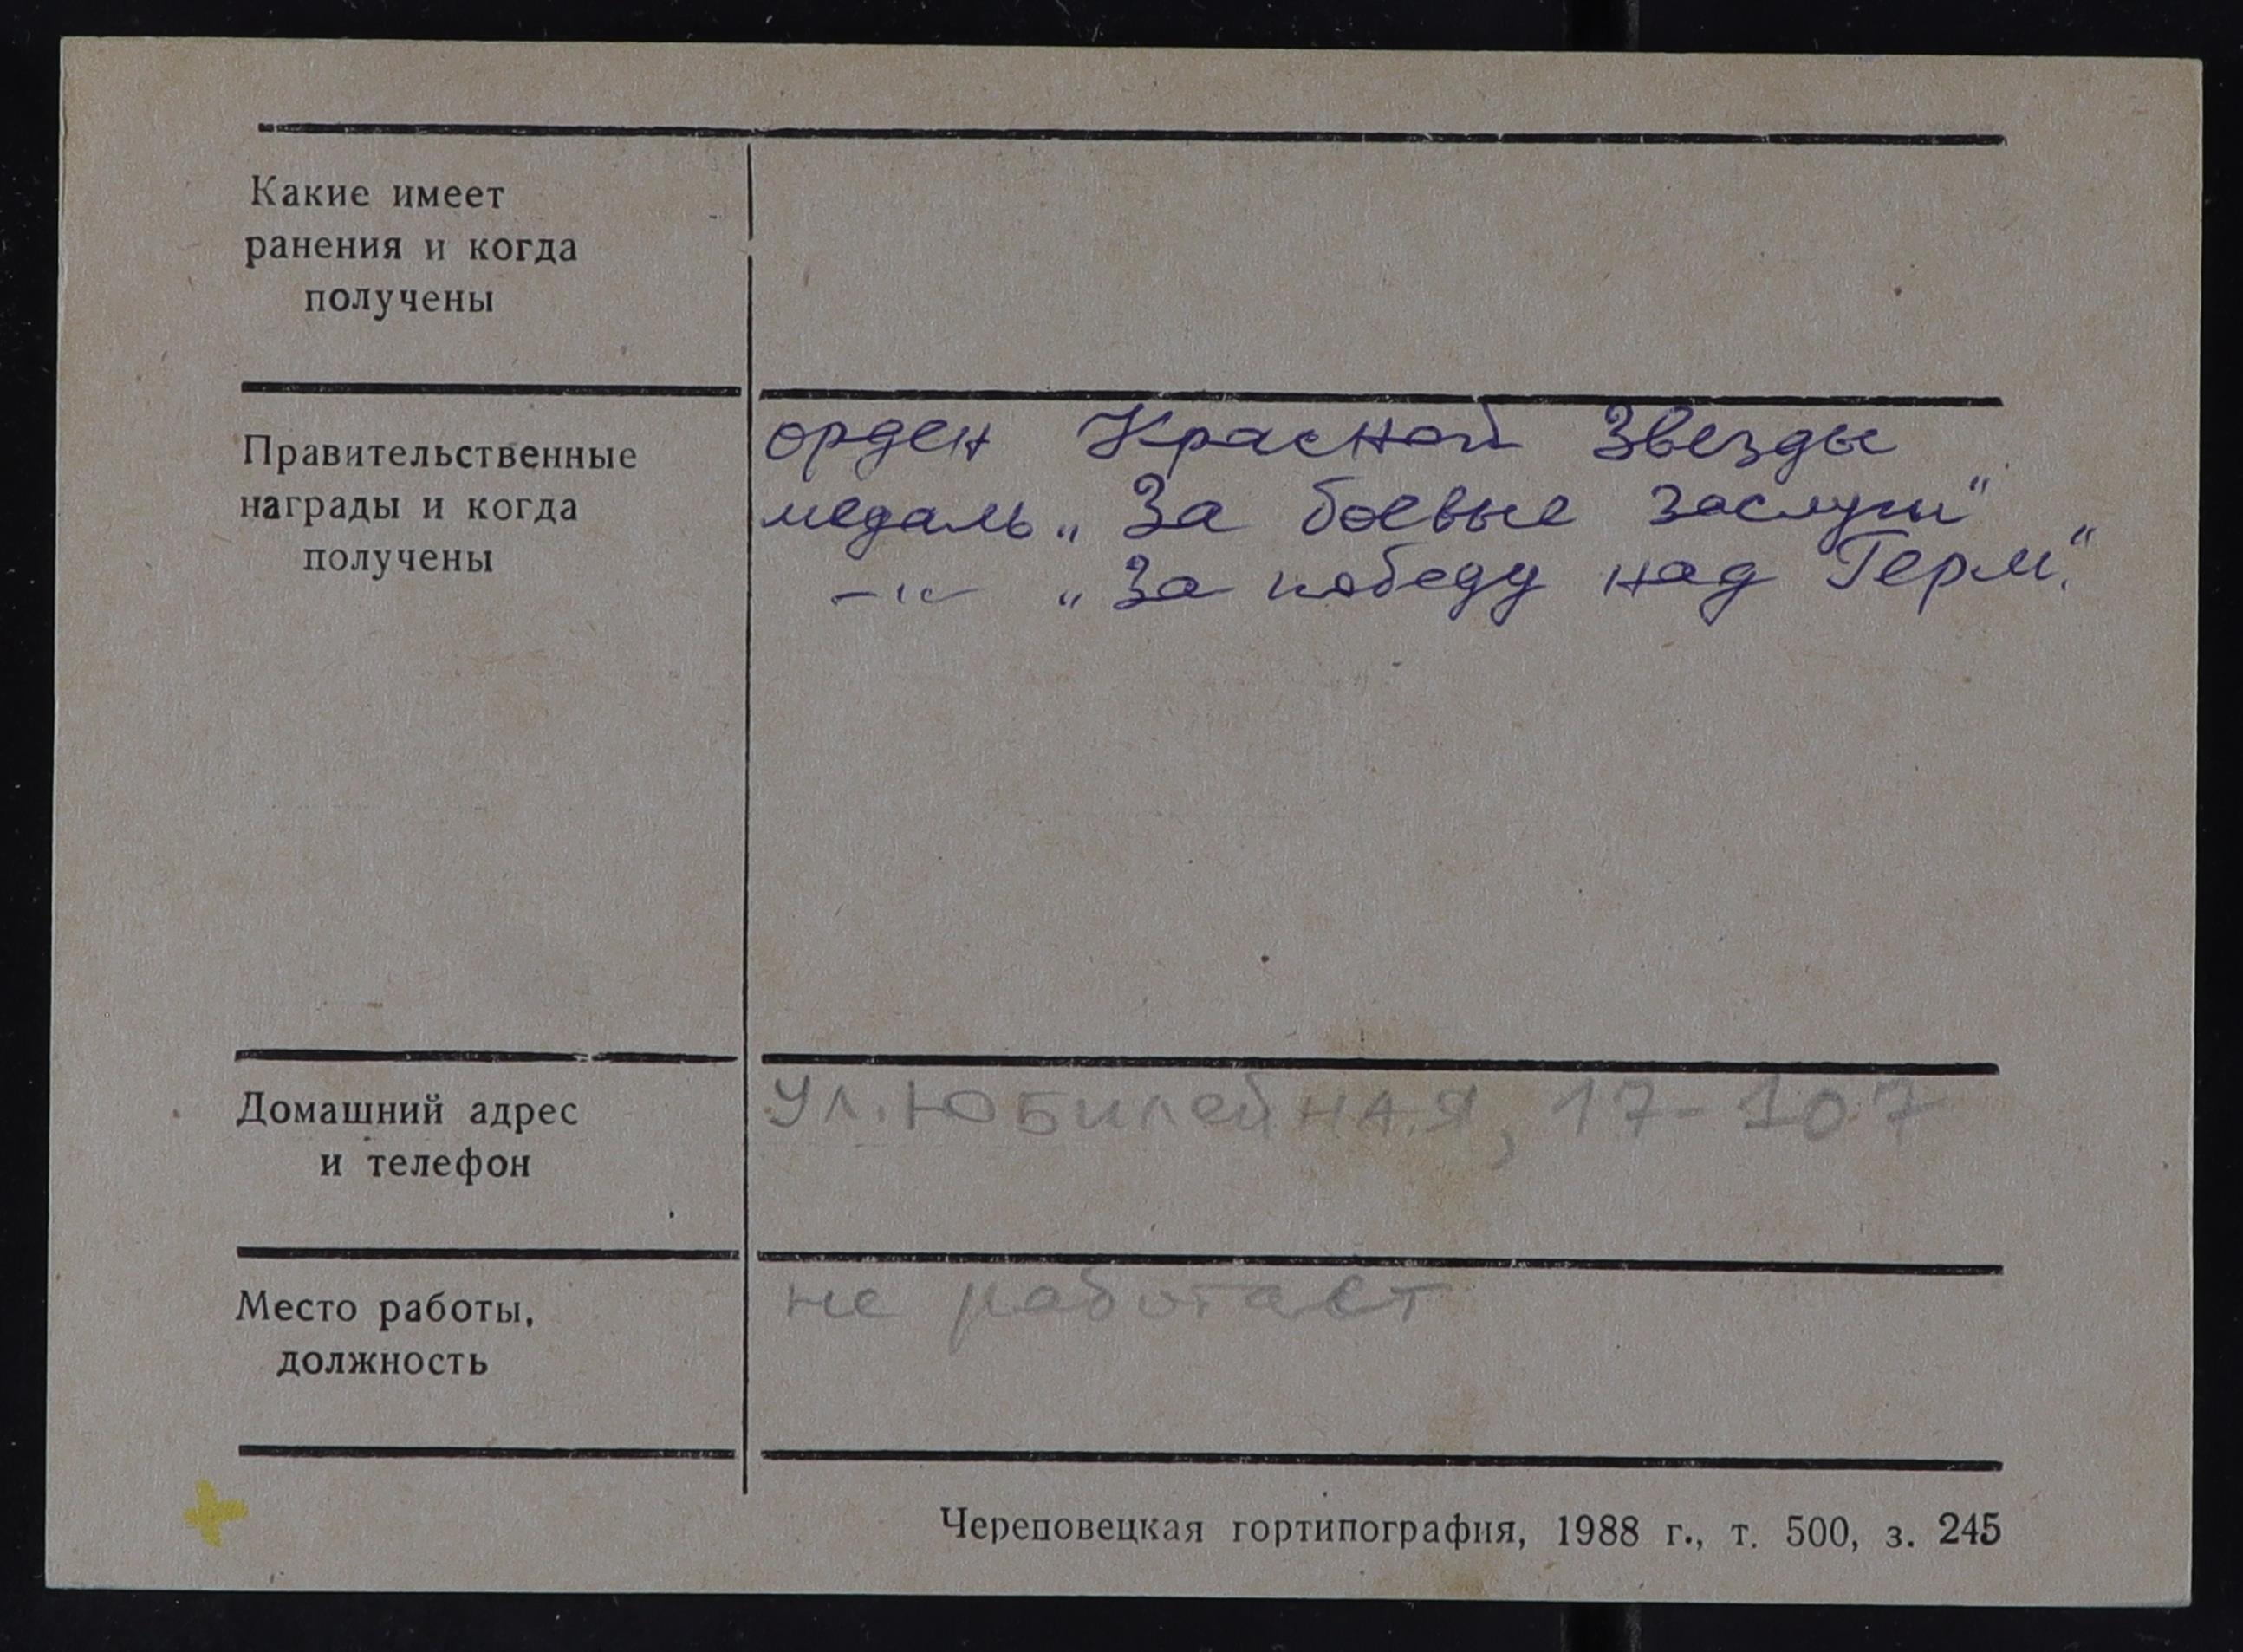 Какие имеет
ранения и когда
получены
Правительственные
награды и когда
получены
орден Красной Звезды
медаль „За боевые заслуги“
—"— „За победу над Герм.“
Домашний адрес
и телефон
ул. Юбилейная, 17-107
Место работы,
должность
не работает
Череповецкая гортипография, 1988 г., т. 500, з. 245